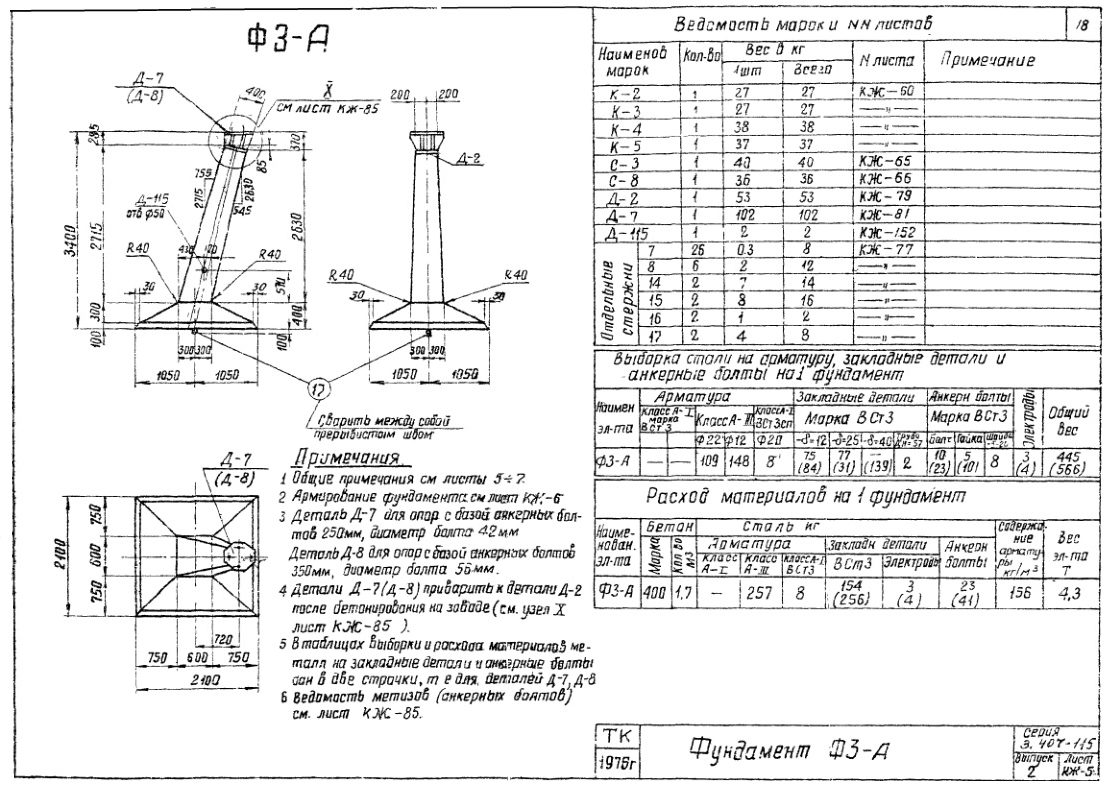 Ф3-А
Д-7
(Д-8)
400
X
см лист КЖ-85
200
200
285
370
85
Д-2
755
2715
2630
545
Д-115
отв ф50
3400
2715
2630
R.40
R.40
R.40
R.40
30
30
30
30
300
100
570
400
100
300
300
300
300
1050
1050
1050
1050
17
Сварить между собой
прерывистым швом
Д-7
(Д-8)
2100
750
600
750
720
750
600
750
2100
Примечания
1 Общие примечания см листы 5÷7
2 Армирование фундамента см лист КЖ-6
3 Деталь Д-7 для опор с базой анкерных бол-
тов 250мм, диаметр болта 42 мм
Деталь Д-8 для опор с базой анкерных болтов
350мм, диаметр болта 56 мм.
4 Детали Д-7 (Д-8) приварить к детали Д-2
после бетонирования на заводе (см. узел X
лист КЖ-85 ).
5 В таблицах выборки и расхода материалов ме-
талл на закладные детали и анкерные болты
дан в две строчки, т е для деталей Д-7, Д-8
6 Ведомость метизов (анкерных болтов)
см. лист КЖ-85.
Ведомость марок и NN листов
18
Наименов марок Кол-во Вес в кг N листа Примечание
1 шт Всего
К-2 1 27 27 КЖ-60
К-3 1 27 27 —"—
К-4 1 38 38 —"—
К-5 1 37 37 —"—
С-3 1 40 40 КЖ-65
С-8 1 36 36 КЖ-66
Д-2 1 53 53 КЖ-79
Д-7 1 102 102 КЖ-81
Д-115 1 2 2 КЖ-152
Отдельные стержни
7 26 0.3 8 КЖ-77
8 6 2 12 —"—
14 2 7 14 —"—
15 2 8 16 —"—
16 2 1 2 —"—
17 2 4 8 —"—
Выборка стали на арматуру, закладные детали и
анкерные болты на 1 фундамент
Наимен эл-та Арматура Закладные детали Анкерн болты Электроды Общий вес
Класс А-I марка ВСт3 Класс А-III Класс А-I ВСт3сп Марка ВСт3 Марка ВСт3
Ф22 Ф12 Ф20 -δ=12 -δ=25 -δ=40 Болт Гайка
Ф3-А — — 109 148 8 75 (84) 77 (31) — (139) 2 10 (23) 5 (10) 8 3 (4) 445 (566)
Расход материалов на 1 фундамент
Наиме-нован. эл-та Бетон Сталь кг Содержа-ние армату-ры кг/м³ Вес эл-та Т
Марка Кол во м³ Арматура Закладн детали Анкерн болты
Класс А-I Класс А-III Класс А-I ВСт3 ВСт3 Электроды
Ф3-А 400 1,7 — 257 8 154 (256) 3 (4) 23 (41) 156 4,3
ТК
1976г
Фундамент Ф3-А
Серия
3.407-115
Выпуск
2
Лист
КЖ-5